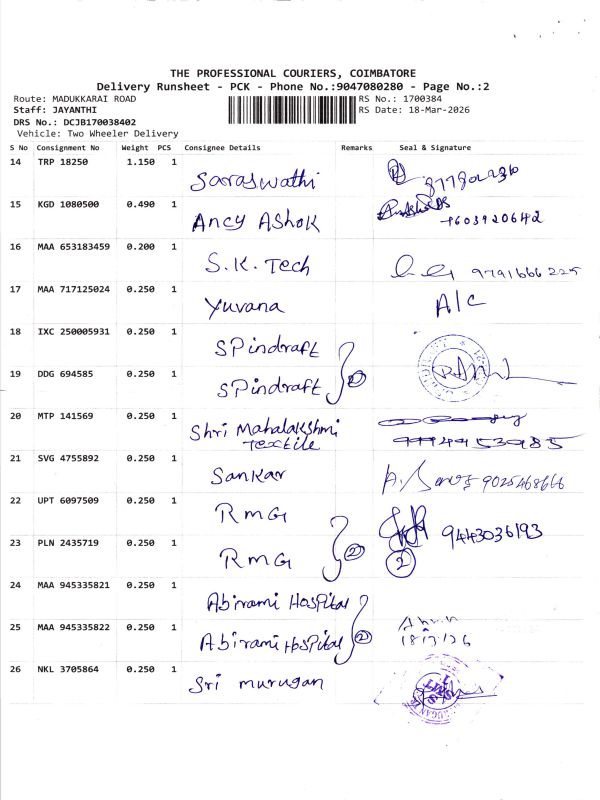 THE PROFESSIONAL COURIERS, COIMBATORE
Delivery Runsheet - PCK - Phone No.:9047080280 - Page No.:2
Route: MADUKKARAI ROAD
Staff: JAYANTHI
DRS No.: DCJB170038402
Vehicle: Two Wheeler Delivery
RS No.: 1700384
RS Date: 18-Mar-2026
S No Consignment No Weight PCS Consignee Details Remarks Seal & Signature
14 TRP 18250 1.150 1 Saraswathi
15 KGD 1080500 0.490 1 Ancy Ashok 9603920642
16 MAA 653183459 0.200 1 S.K. Tech 9791666225
17 MAA 717125024 0.250 1 Yuvana A/C
18 IXC 250005931 0.250 1 SPindraft
19 DDG 694585 0.250 1 SPindraft 2
20 MTP 141569 0.250 1 Shri Mahalakshmi
Textile 9994953985
21 SVG 4755892 0.250 1 Sankar 9025468666
22 UPT 6097509 0.250 1 RMG 9443036193
23 PLN 2435719 0.250 1 RMG 2 2
24 MAA 945335821 0.250 1 Abirami Hospital
25 MAA 945335822 0.250 1 Abirami Hospital 2 18/3/26
26 NKL 3705864 0.250 1 Sri murugan